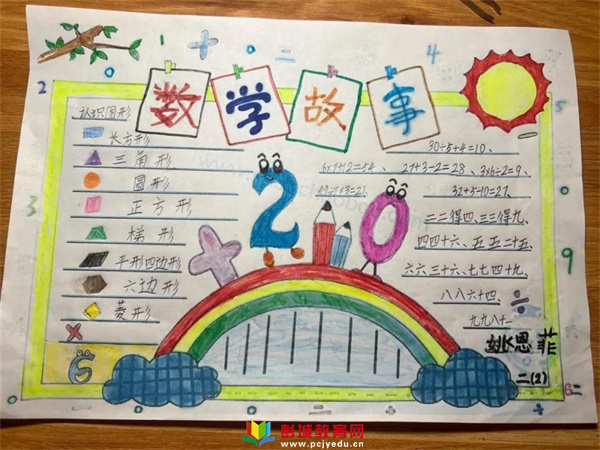 1
4
2
5
3
9
数学故事
认识图形
长方形
三角形
圆形
正方形
梯形
平形四边形
六边形
菱形
×
6
+20
30÷5+4=10、
27+3-2=28、
32+5-10=27、
二二得四、三三得九、
四四十六、五五二十五、
六六三十六、七七四十九、
八八六十四、
÷
九九八十一
姚恩菲
二(2)
彭城教育网
www.pcjyedu.cn